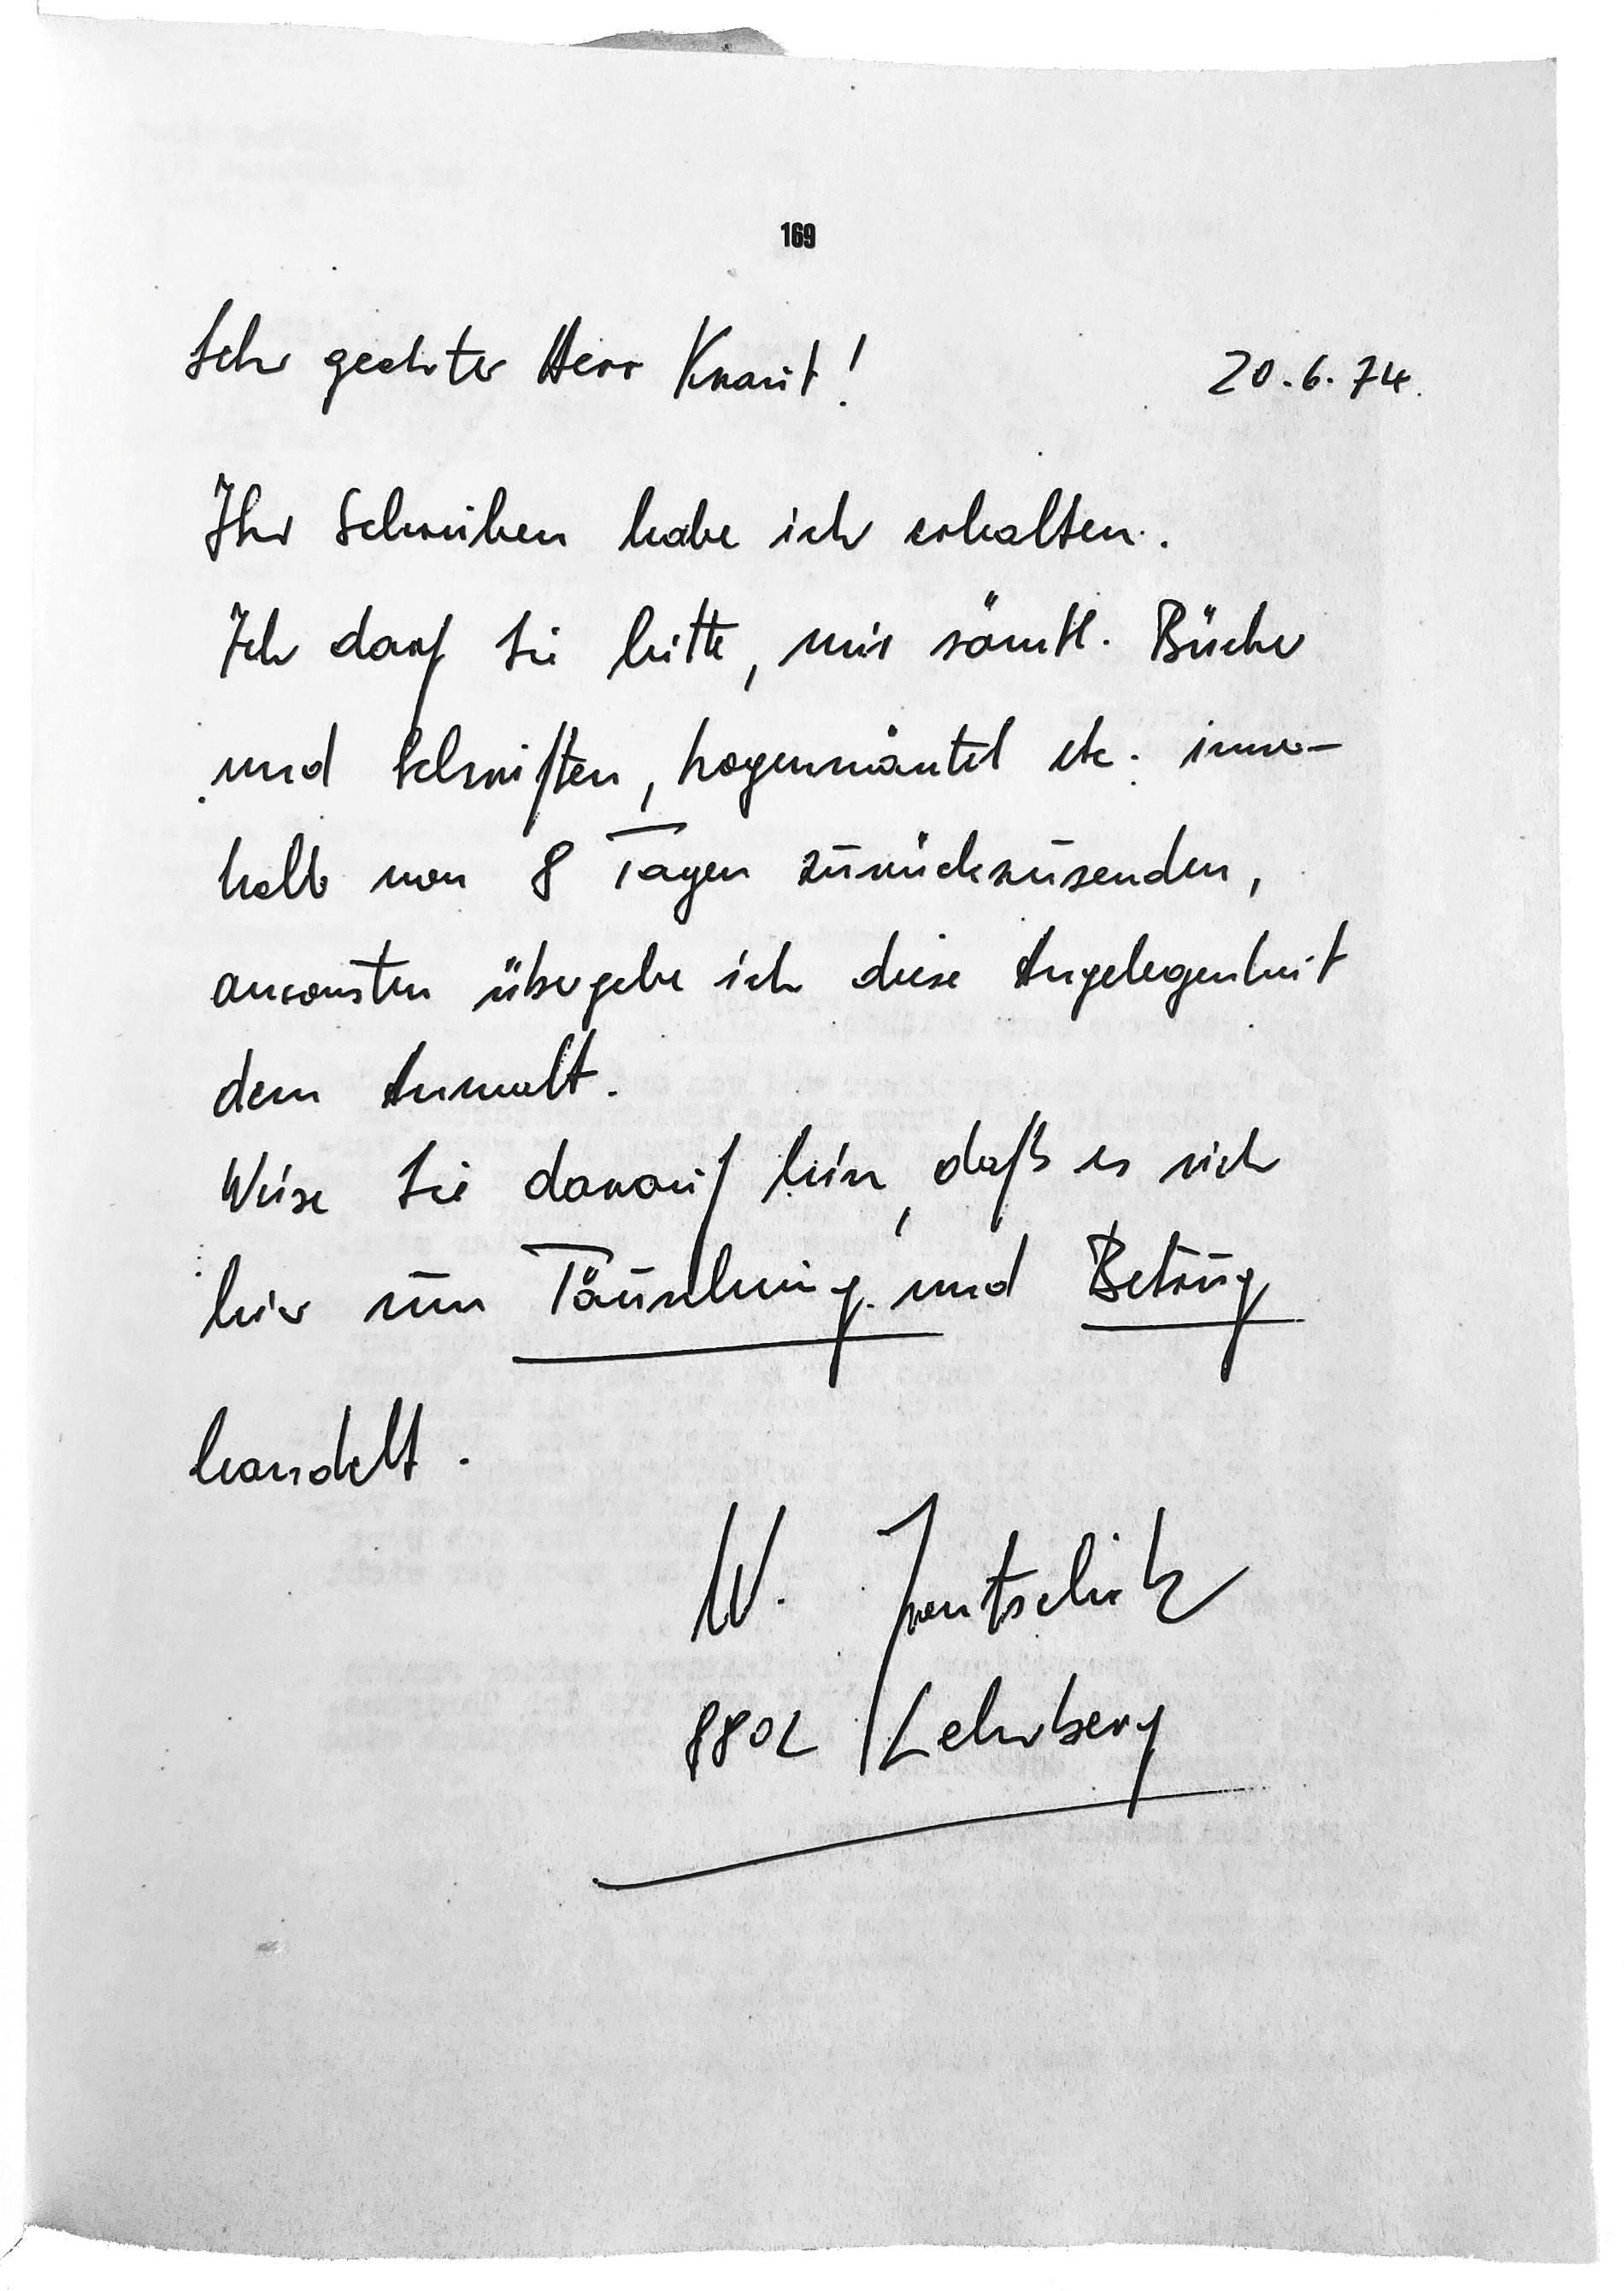 169
Sehr geehrter Herr Knaut!
20.6.74.
Ihr Schreiben habe ich erhalten.
Ich darf Sie bitte, mir sämtl. Bücher
und Schriften, Regenmäntel etc. inner-
halb von 8 Tagen zurückzusenden,
ansonsten übergebe ich diese Angelegenheit
dem Anwalt.
Weise Sie darauf hin, daß es sich
hier um Täuschung und Betrug
handelt.
W.
8802 Lehrberg